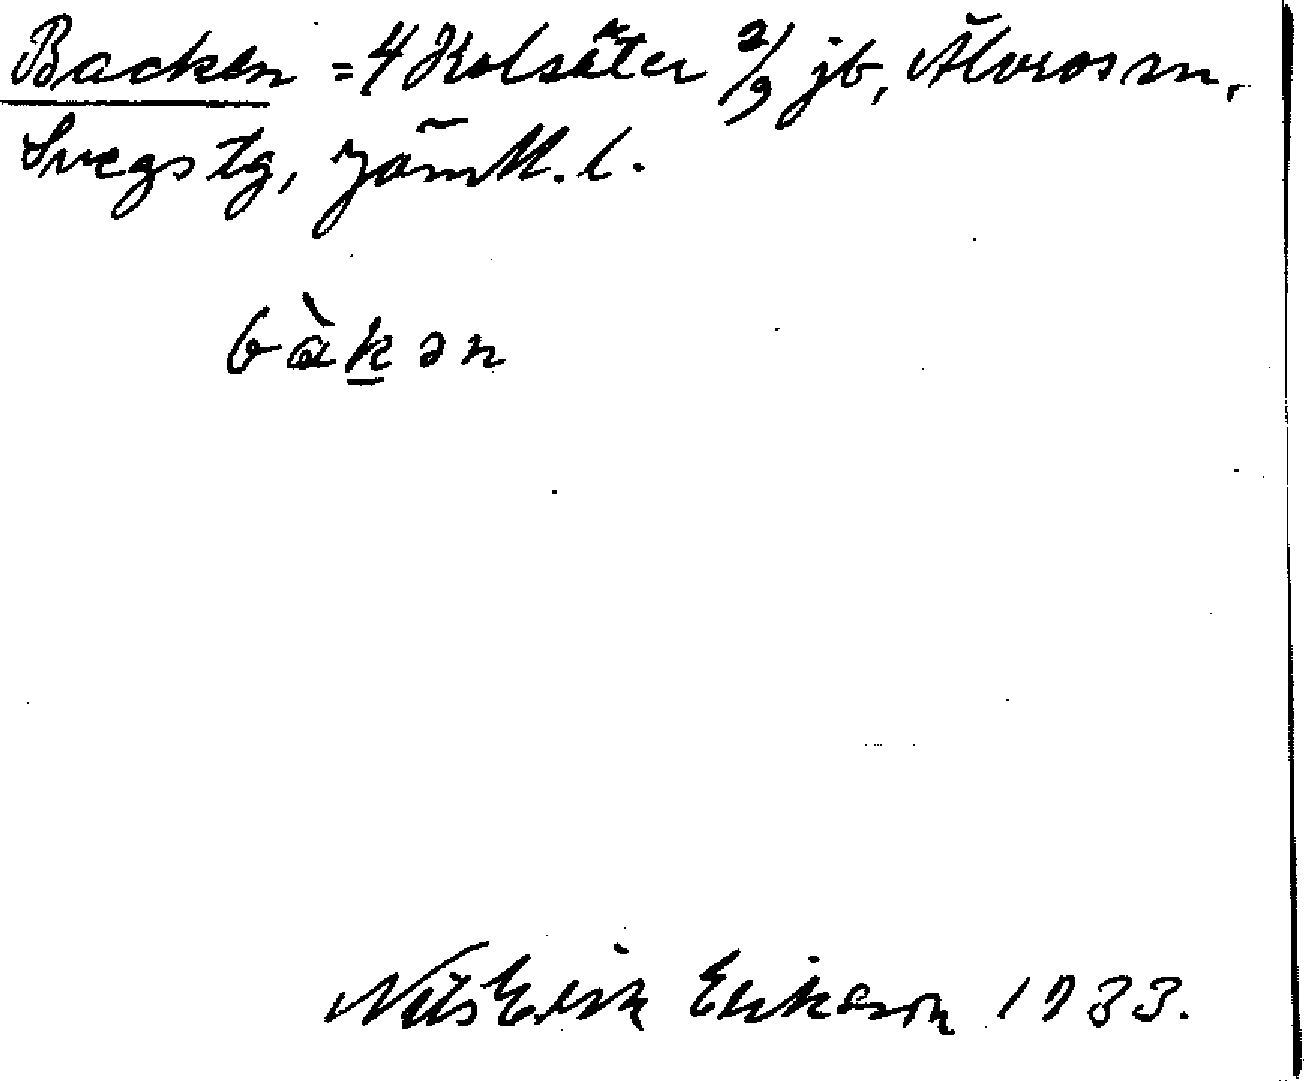 Backen = 4 Kolsäter 2/9 jb, Älvros sn,
Svegs tg, Jämtl. l.
bàkən
Nils Erik Erikson 1933.